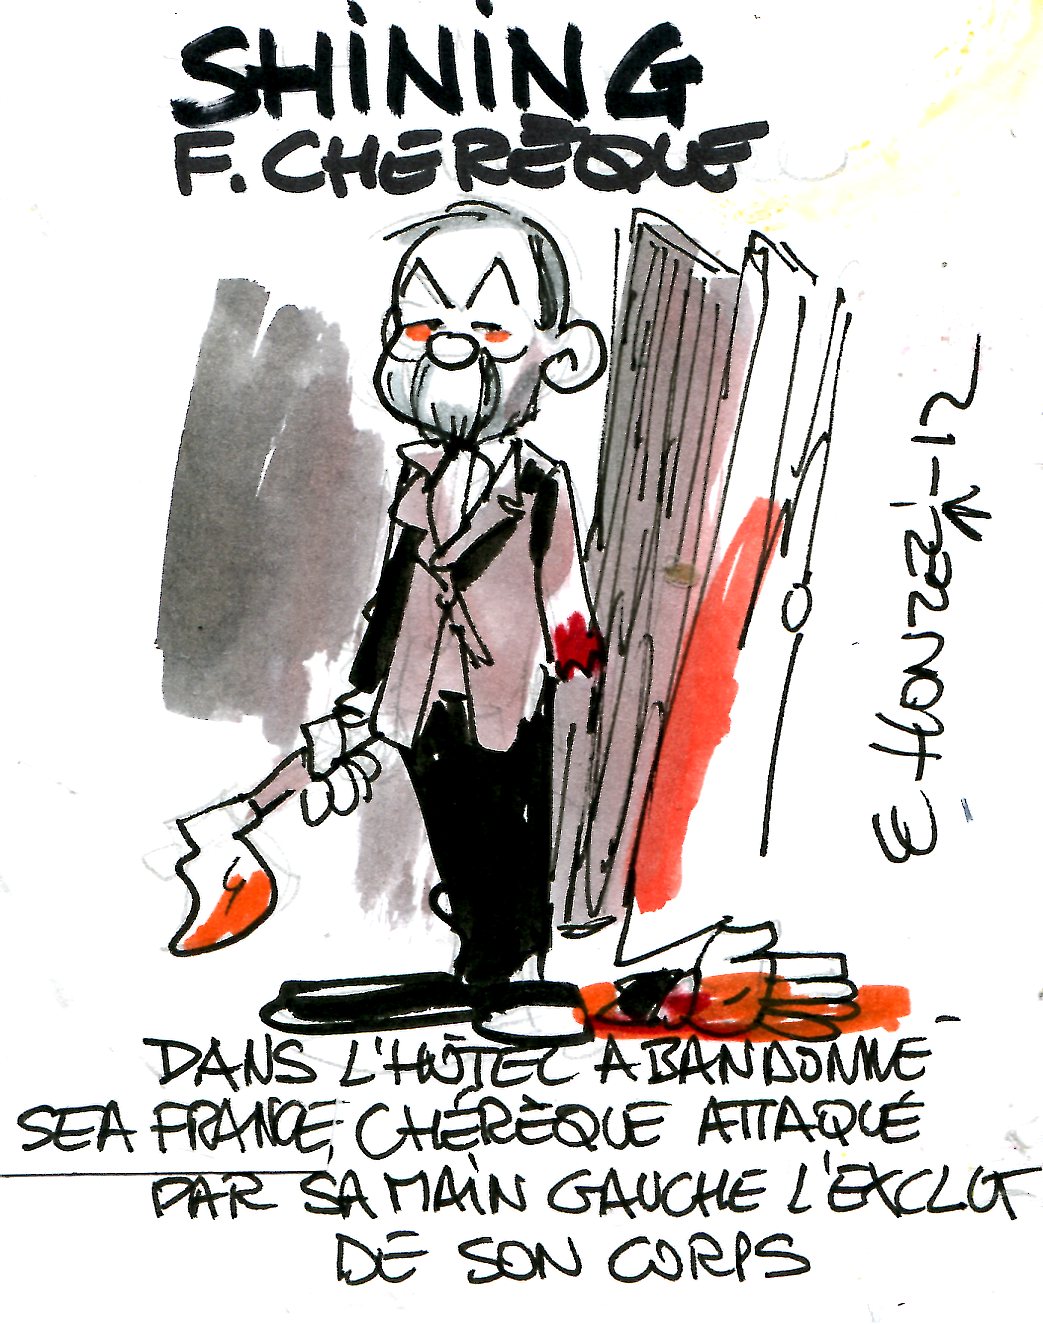 SHINING
F. CHERÈQUE
E HONZÉ!-12
DANS L'HÔTEL ABANDONNÉ
SEA FRANCE, CHÉRÈQUE ATTAQUÉ
PAR SA MAIN GAUCHE L'EXCLUT
DE SON CORPS